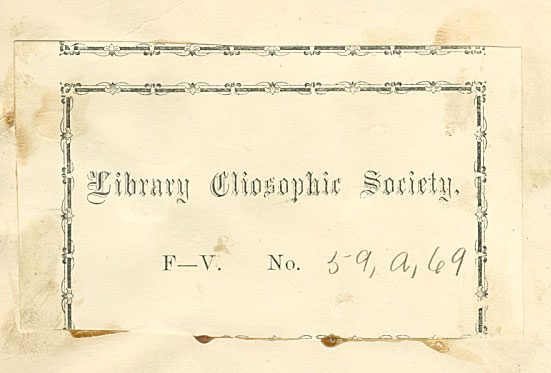 Library Cliosophic Society.
F—V. No. 59, a, 69